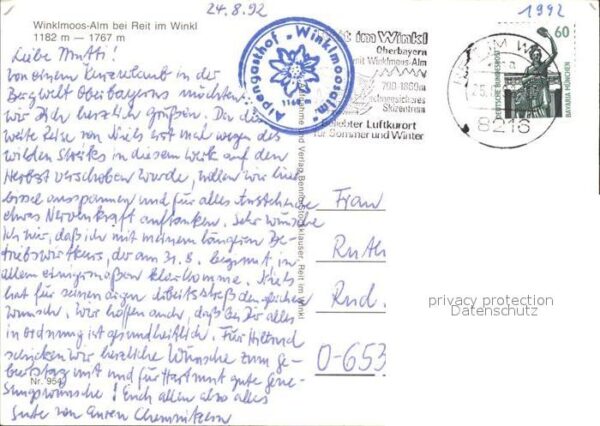 24.8.92
1992
Winklmoos-Alm bei Reit im Winkl
1182 m — 1767 m
Liebe Mutti!
Von einem Kurzurlaub in der
Bergwelt Oberbayerns möchten
wir Dich herzlich grüßen. Da die
weite Reise von Niels erst mal wegen des
wilden Streiks in diesem Werk auf den
Herbst verschoben wurde, wollen wir hier
bissel ausspannen und für alles Anstehende
etwas Nervenkraft auftanken. Sehr wünsche
ich mir, daß ich mit meinem längeren Be-
triebswirtkurs, der am 31.8. beginnt, in
allem einigermaßen klarkomme. Niels
hat für seinen argen Arbeitsstreß den gleichen
Wunsch. Wir hoffen auch, daß bei Dir alles
in Ordnung ist gesundheitlich. Für Hiltrud
schicken wir herzliche Wünsche zum Ge-
burtstag mit und für Hartmut gute Gene-
sungswünsche! Euch allen also alles
Gute von Euren Chemnitzern
Nr. 954
Alpengasthof "Winklmoosalm"
1160 m
Reit im Winkl
Oberbayern
mit Winklmoos-Alm
700-1860m
schneesicheres
Skizentrum
beliebter Luftkurort
für Sommer und Winter
REIT IM WINKL
8216
60
DEUTSCHE BUNDESPOST
BAVARIA MÜNCHEN
und Verlag Benno Stocklauser, Reit im Winkl
Frau
Ruth
Rud.
O-653
privacy protection
Datenschutz